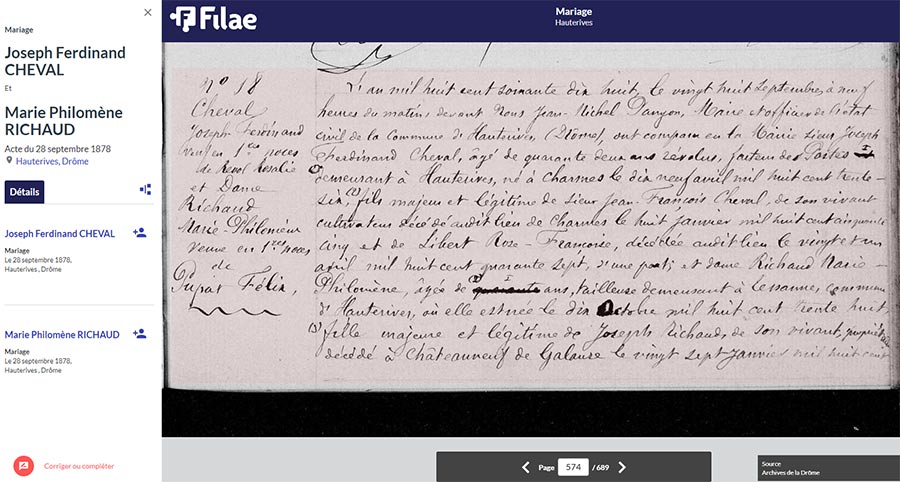 Mariage
Joseph Ferdinand
CHEVAL
Et
Marie Philomène
RICHAUD
Acte du 28 septembre 1878
Hauterives, Drôme
Détails
Joseph Ferdinand CHEVAL
Mariage
Le 28 septembre 1878,
Hauterives , Drôme
Marie Philomène RICHAUD
Mariage
Le 28 septembre 1878,
Hauterives , Drôme
Corriger ou compléter
Filae
Mariage
Hauterives
No 18
Cheval
Joseph Ferdinand
veuf en 1res noces
de Revol Rosalie
et Dame
Richaud
Marie-Philomène
veuve en 1res noces
de
L'an mil huit cent soixante dix huit, le vingt huit Septembre, à neuf
heures du matin, devant Nous Jean-Michel, Maire et officier de l'état
civil de la Commune de Hauterives, (Drôme), ont comparu en la Mairie sieur Joseph
Ferdinand Cheval, âgé de quarante deux ans révolus, facteur des Postes
demeurant à Hauterives, né à Charmes le dix neuf avril mil huit cent trente-
six, fils majeur et légitime de sieur Jean-François Cheval, de son vivant
cultivateur décédé audit lieu de Charmes le huit janvier mil huit cent cinquante
cinq et de Libert Rose-Françoise, décédée audit lieu le vingt et un
avril mil huit cent quarante sept, d'une part; et dame Richaud Marie-
Philomène, âgée de quarante ans, tailleuse demeurant à commune
d'Hauterives, où elle est née le dix Octobre mil huit cent trente huit,
fille majeure et légitime de Joseph Richaud, de son vivant,
décédé à Châteauneuf de Galaure le vingt sept janvier mil huit cent
Page 574 / 689
Source
Archives de la Drôme